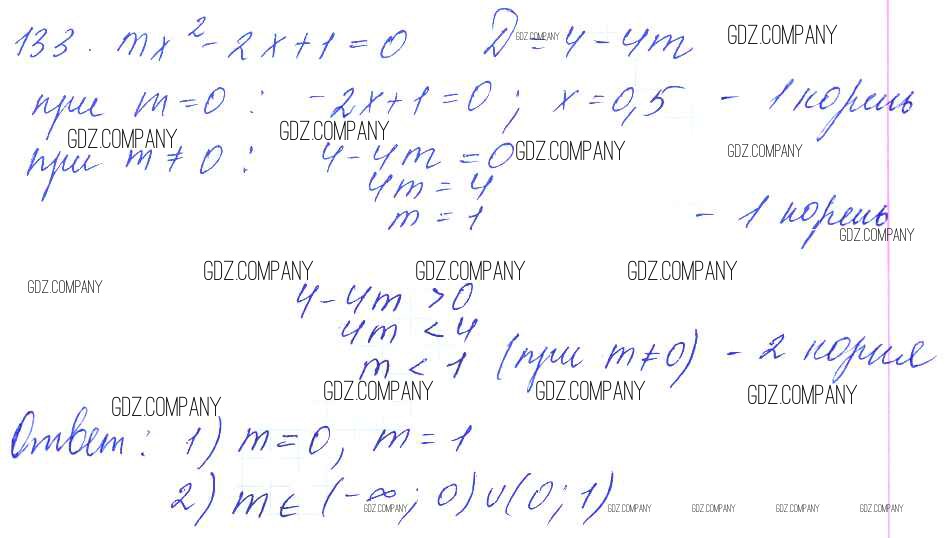 133. mx² - 2x + 1 = 0 D = 4 - 4m GDZ.COMPANY GDZ.COMPANY
при m = 0 : -2x + 1 = 0 ; x = 0,5 - 1 корень
GDZ.COMPANY GDZ.COMPANY
при m ≠ 0 : 4 - 4m = 0 GDZ.COMPANY GDZ.COMPANY
4m = 4
m = 1 - 1 корень
GDZ.COMPANY
GDZ.COMPANY GDZ.COMPANY GDZ.COMPANY GDZ.COMPANY
4 - 4m > 0
4m < 4
m < 1 (при m ≠ 0) - 2 корня
GDZ.COMPANY GDZ.COMPANY GDZ.COMPANY GDZ.COMPANY
Ответ: 1) m = 0, m = 1
2) m ∈ (-∞; 0) ∪ (0; 1)
GDZ.COMPANY GDZ.COMPANY GDZ.COMPANY GDZ.COMPANY GDZ.COMPANY